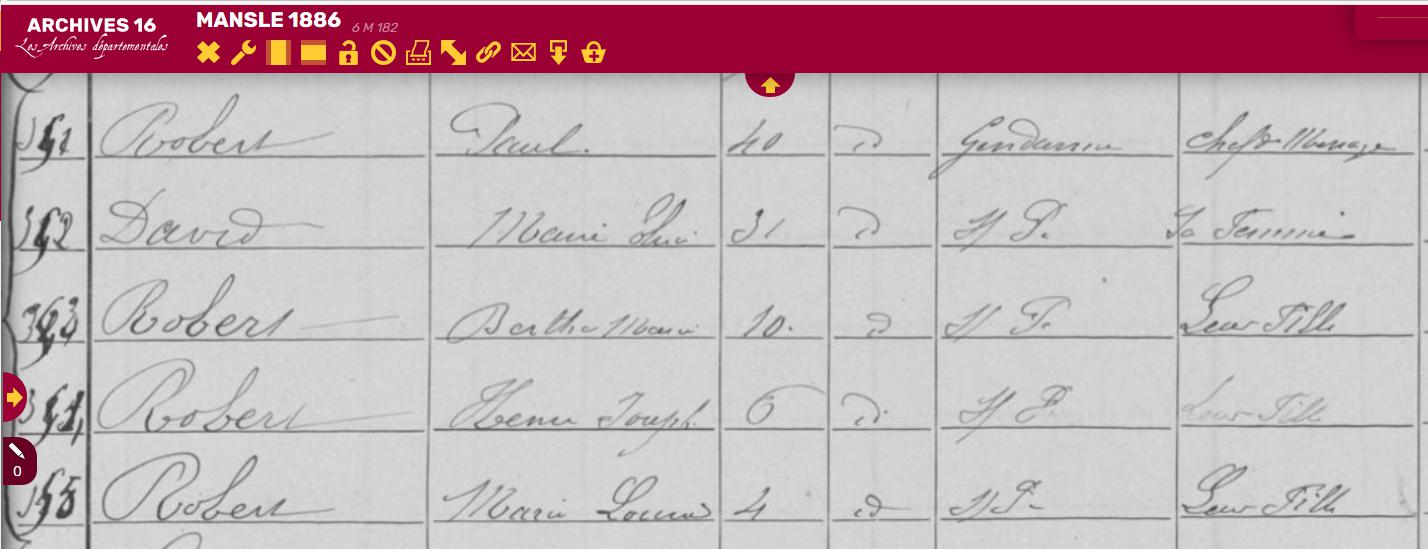 ARCHIVES 16 MANSLE 1886 6 M 182
Les Archives départementales
Robert Paul. 40 d Gendarme chef de Menage
David Marie 31 d S P. Sa Femme
Robert Berthe Marie 10. d S P. Leur Fille
Robert Henri Joseph 6 d. S P. Leur Fille
0
Robert Marie Louise 4 d S P. Leur Fille